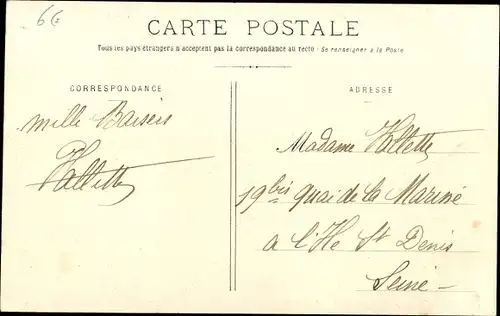 6e
CARTE POSTALE
Tous les pays étrangers n'acceptent pas la correspondance au recto (Se renseigner à la Poste)
CORRESPONDANCE
ADRESSE
mille Baisers
Vallette
Madame Vallette
19 bis quai de la Marine
a l'Ile St Denis
Seine